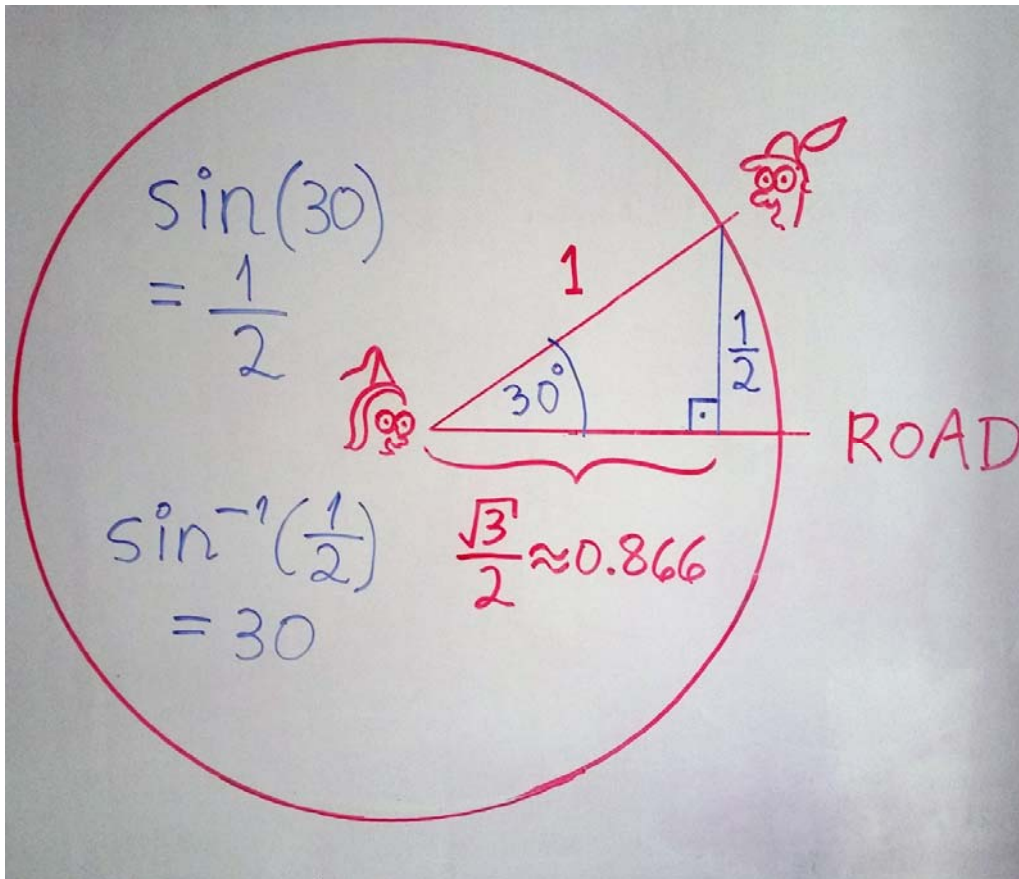 sin(30)
= 1/2
1
30°
1/2
ROAD
sin⁻¹(1/2)
= 30
√3/2 ≈ 0.866